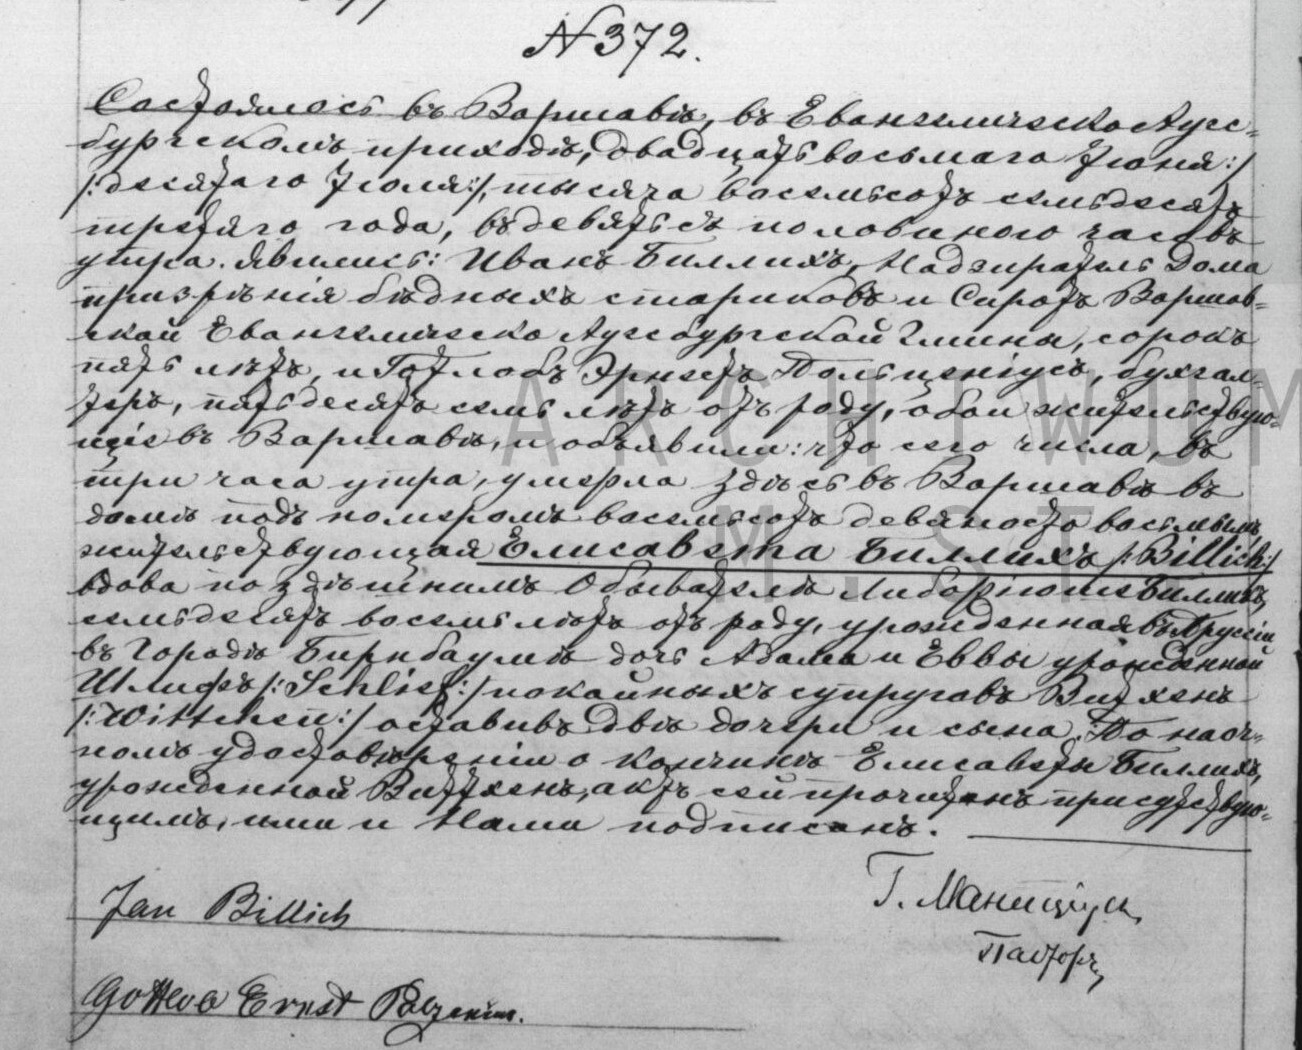 N 372.
Состоялось въ Варшавѣ, въ Евангелическо Аугс-
бургскомъ приходѣ, двадцать восьмаго Іюня :/
/: десятаго Іюля :/, тысяча восемьсотъ семьдесятъ
третяго года, въ девять съ половиною часовъ
утра. Явились: Иванъ Биллихъ, Надзиратель Дома
призрѣнія бѣдныхъ стариковъ и Сиротъ Варшав-
ской Евангелическо Аугсбургской Гмины, сорокъ
пять лѣтъ, и Готлобъ Эрнестъ Польценіусъ, бухгал-
теръ, пятьдесятъ семь лѣтъ отъ роду, оба жительствую-
щіе въ Варшавѣ, и объявили: что сего числа, въ
три часа утра, умерла здѣсь въ Варшавѣ въ
домѣ подъ номеромъ восемьсотъ девяносто восьмымъ
жительствующая Елисавета Биллихъ /: Billich :/
вдова по здѣшнимъ Обывателѣ Либоріюшѣ Биллихъ,
семьдесятъ восемь лѣтъ отъ роду, урожденная въ Пруссіи
въ Городѣ Бирнбаумѣ дочь Адама и Еввы урожденной
Шлифъ /: Schlief :/ покойныхъ супруговъ Витхенъ
/: Wittchen :/ оставивъ двѣ дочери и сына. По наоч-
номъ удостовѣреніи о кончинѣ Елисаветы Биллихъ,
урожденной Витхенъ, актъ сей прочитанъ присутствую-
щимъ, ими и Нами подписанъ.
Jan Billich
Г. Маниціусъ
Пасторъ
Gottlob Ernst Polzenius.
ARCHIWUM
M. ST.